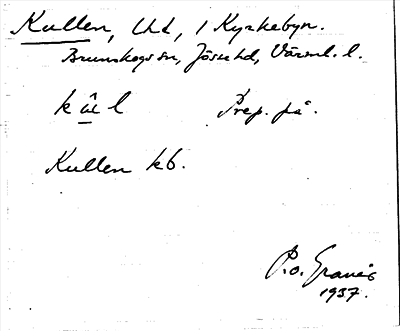 Kullen, Ud, i Kyrkebyn.
Brunskogs sn, Jösehd, Värml. l.
kul Prep. på.
Kullen kb.
P.O. Granér
1937.